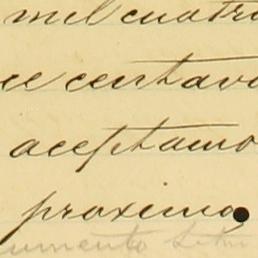 mil cuatro
ce centavo
aceptamo
proximo.
umento